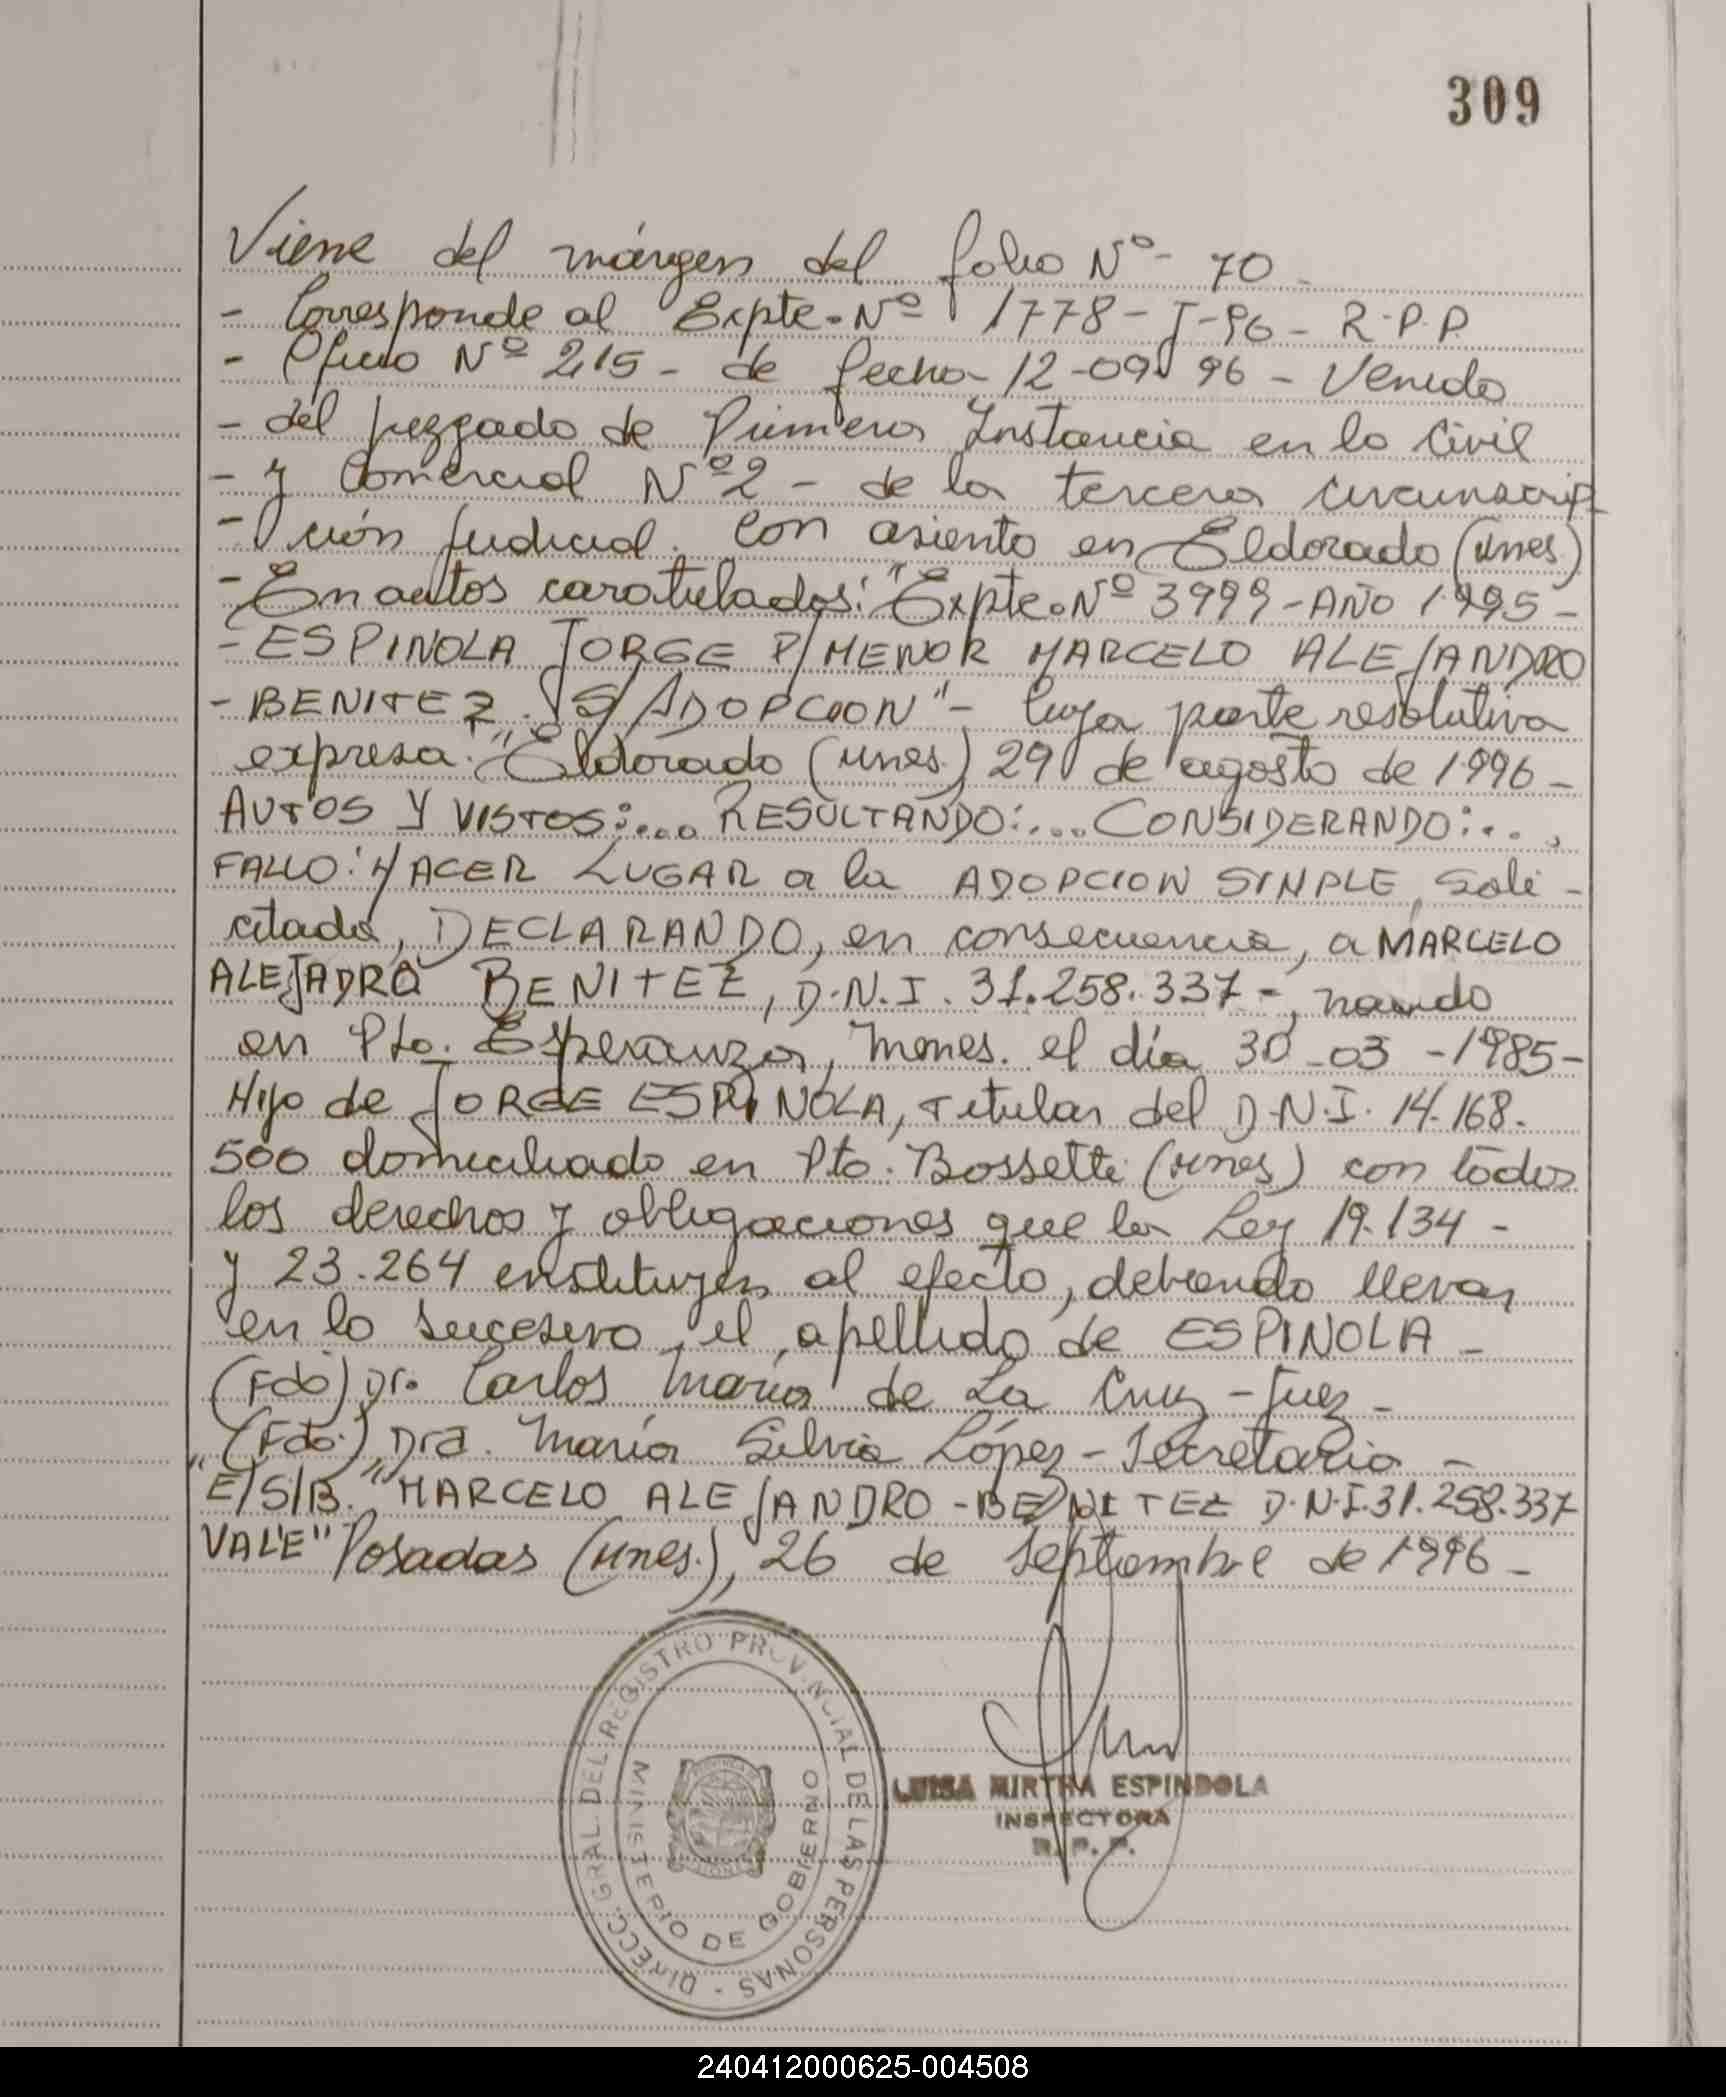 309
Viene del márgen del folio Nº- 70 -
- Corresponde al Expte. Nº 1778-J-96- R.P.P.
- Oficio Nº 215- de fecha- 12-09-96 - Venido
- del juzgado de Primera Instancia en lo Civil
- y Comercial Nº2 - de la tercera circunscrip
- ción Judicial. Con asiento en Eldorado (Mnes)
- En autos caratulados: "Expte. Nº 3999-AÑO 1995-
- ESPINOLA JORGE P/MENOR MARCELO ALEJANDRO
- BENITEZ. S/ADOPCION"- Cuya parte resolutiva
expresa: "Eldorado (Mnes.) 29 de agosto de 1996-
AUTOS Y VISTOS:... RESULTANDO:... CONSIDERANDO:...,
FALLO: HACER LUGAR a la ADOPCION SIMPLE, Soli-
citada, DECLARANDO, en consecuencia, a MARCELO
ALEJADRO BENITEZ, D.N.I. 31.258.337-, nacido
en Pto. Esperanza, Mnes. el día 30-03-1985-
Hijo de JORGE ESPINOLA, titular del D.N.I. 14.168.
500 domiciliado en Pto. Bossetti (Mnes) con todos
los derechos y obligaciones que la Ley 19.134 -
y 23.264 instituyen al efecto, debiendo llevar
en lo sucesivo, el apellido de ESPINOLA -
(Fdo) Dr. Carlos María de La Cruz - Juez -
"(Fdo.) Dra. María Silvia López - Secretaria -
E/S/B. "MARCELO ALEJANDRO - BENITEZ D.N.I. 31.258.337
VALE" Posadas (Mnes.), 26 de Septiembre de 1996-
DIRECC. GRAL. DEL REGISTRO PROVINCIAL DE LAS PERSONAS -
MINISTERIO DE GOBIERNO
LUISA MIRTHA ESPINDOLA
INSPECTORA
R. P. P.
240412000625-004508